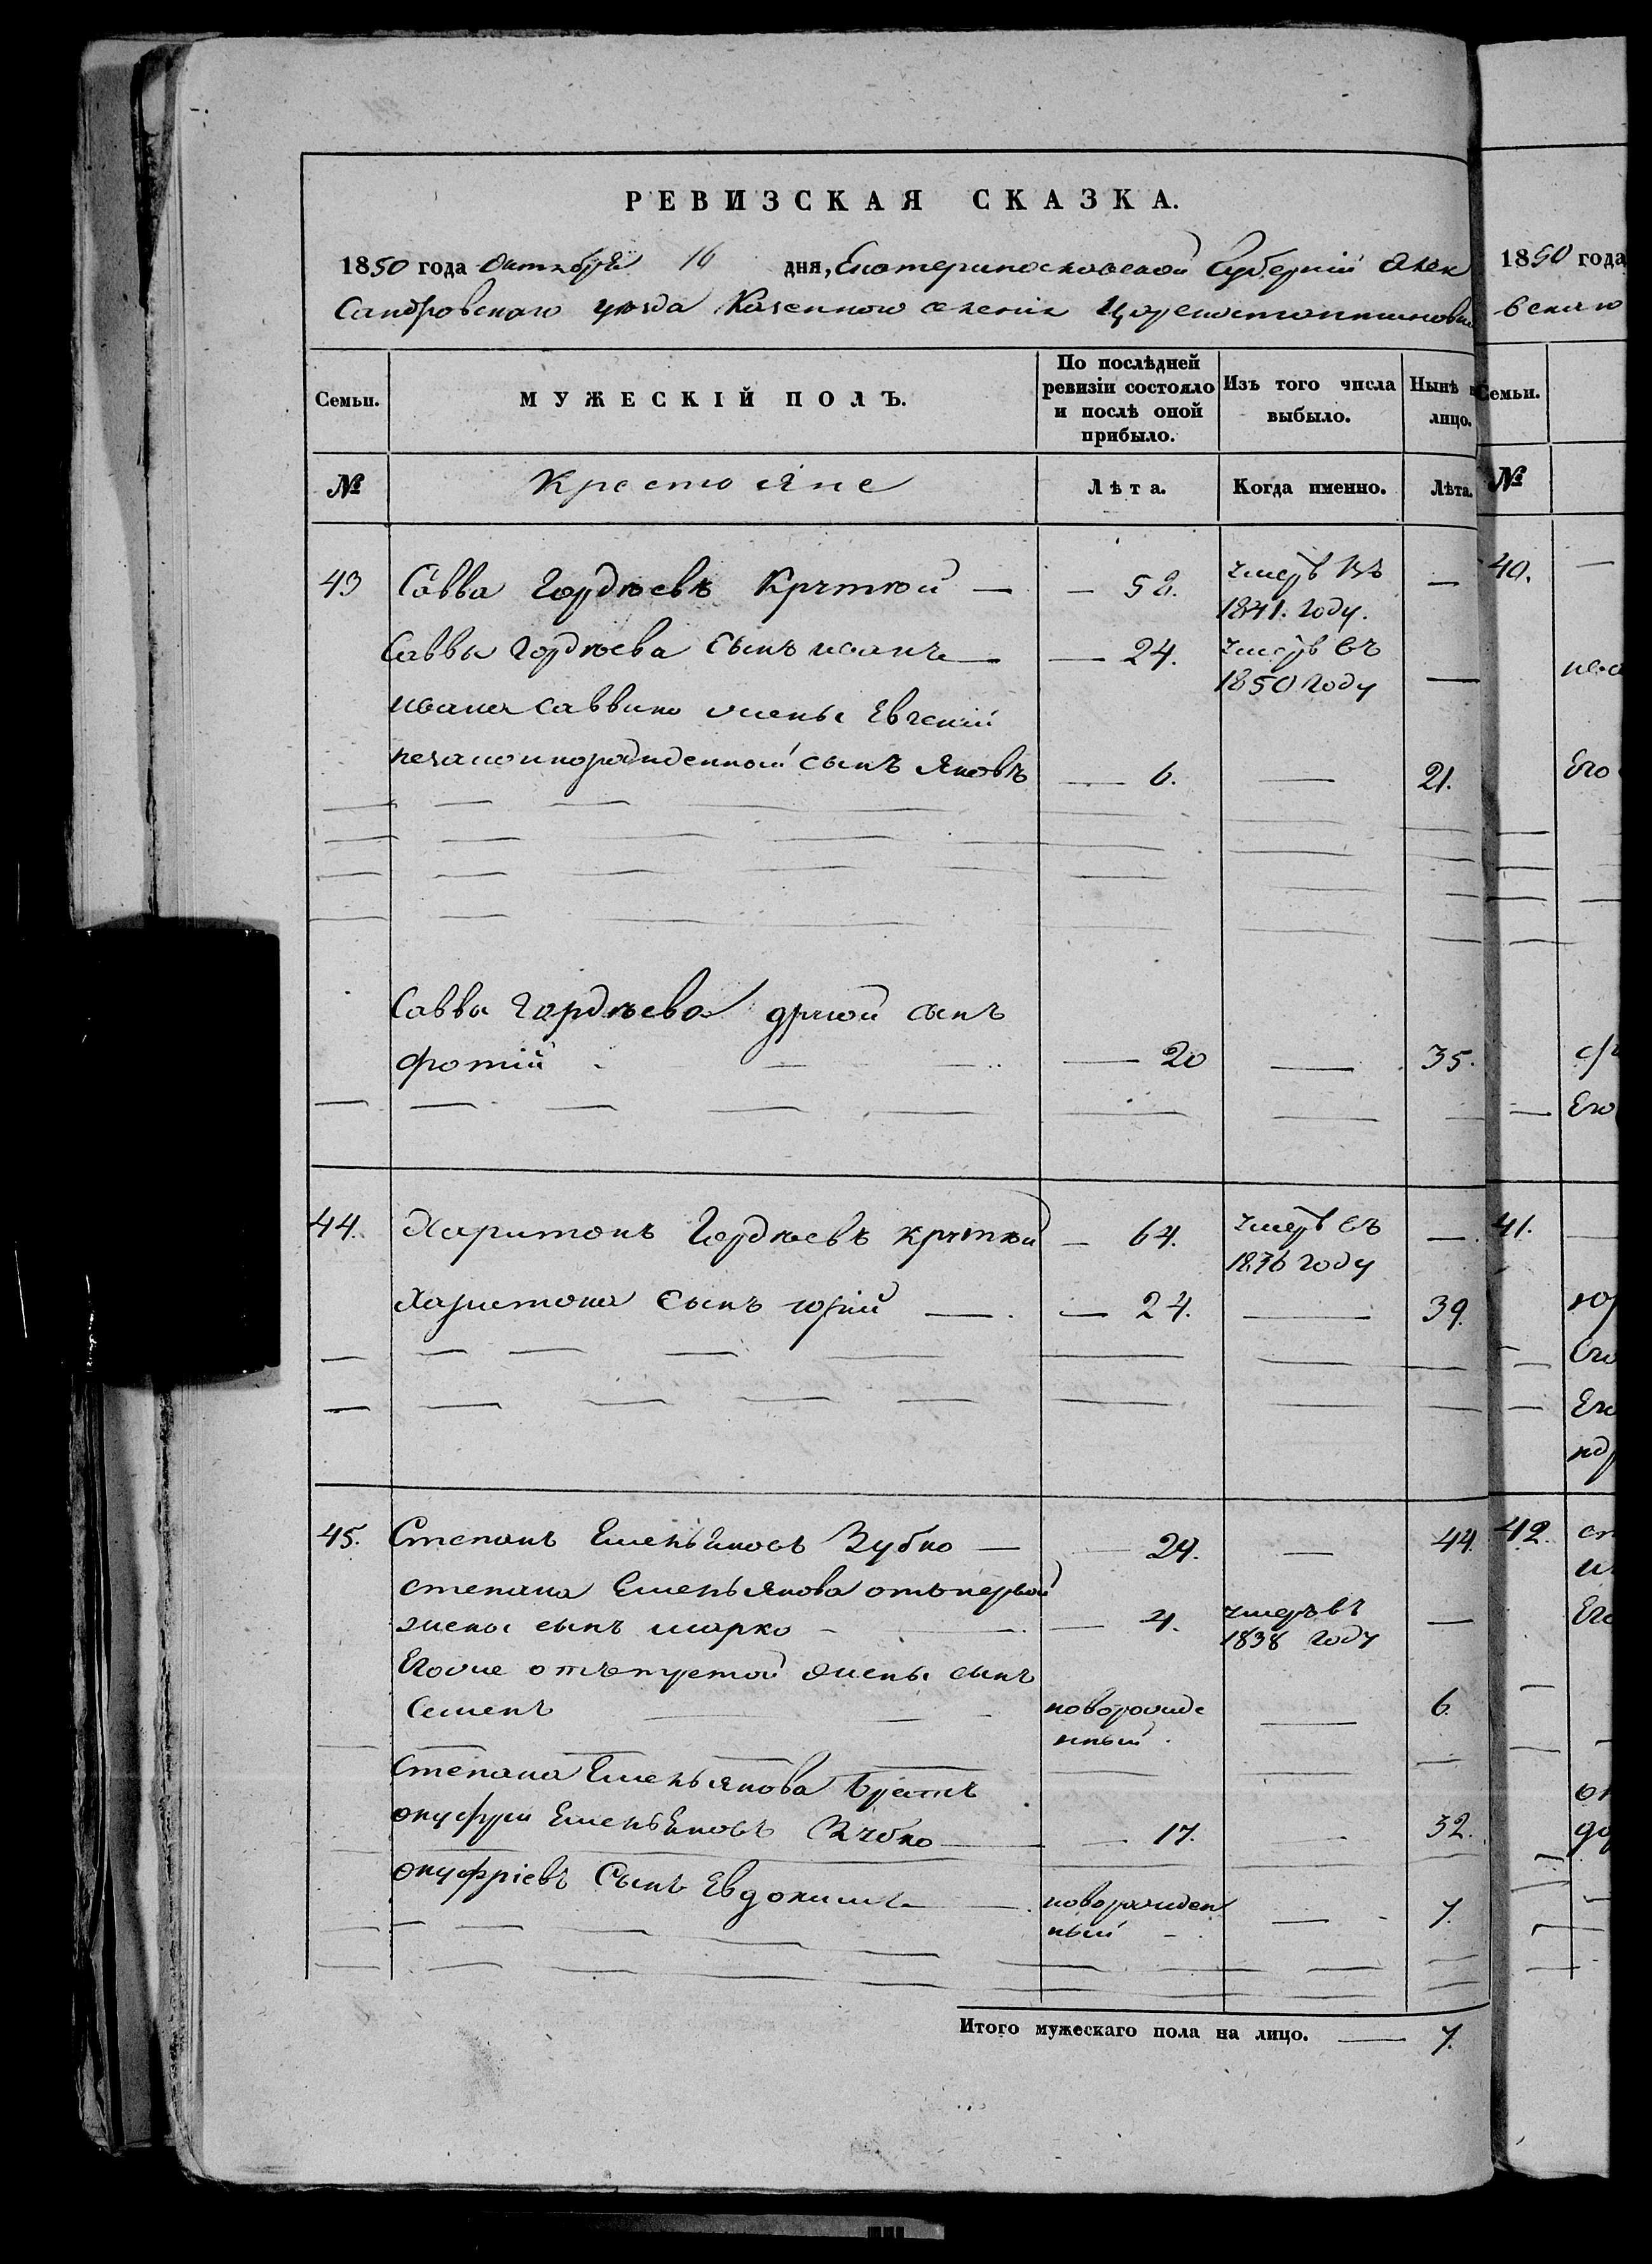 РЕВИЗСКАЯ СКАЗКА.
1850 года Октября 16 дня, Екатеринославской Губернiи Алек
сандровскаго уезда Казенного селенiя Цареконстантиновки
Семьи. МУЖЕСКIЙ ПОЛЪ. По послѣдней ревизiи состояло и послѣ оной прибыло. Изъ того числа выбыло. Нынѣ лицо.
№ Крестояне Лѣта. Когда именно. Лѣта.
43 Савва Гордѣевъ Круткой — — 52. умеръ въ 1841. году. —
Саввы Гордѣева сынъ иванъ — — 24. умеръ въ 1850 году —
ивана саввина жены Евгенiи
незаконнорожденной сынъ Яковъ — 6. — 21.
Саввы Гордѣева другой сынъ
фотiй — 20 — 35.
44. Харитонъ Гордѣевъ круткой — 64. умеръ въ 1836 году —
Харитона сынъ юрiй — — 24. — 39.
45. Степанъ Емельяновъ Зубко — — 29. — 44.
степана Емельянова отъ первой
жены сынъ марко — — 4. умеръ въ 1838 году —
Егоже отъ жены сынъ
Семенъ — новорожде нный. — 6.
Степана Емельянова братъ
онуфрiй Емельяновъ Зубко — — 17. — 32.
онуфрiевъ Сынъ Евдокимъ — новорожден ный — 7.
Итого мужескаго пола на лицо. — 7.
1850 года
Семьи.
№
40. —
Его
41.
Его
42.
Его